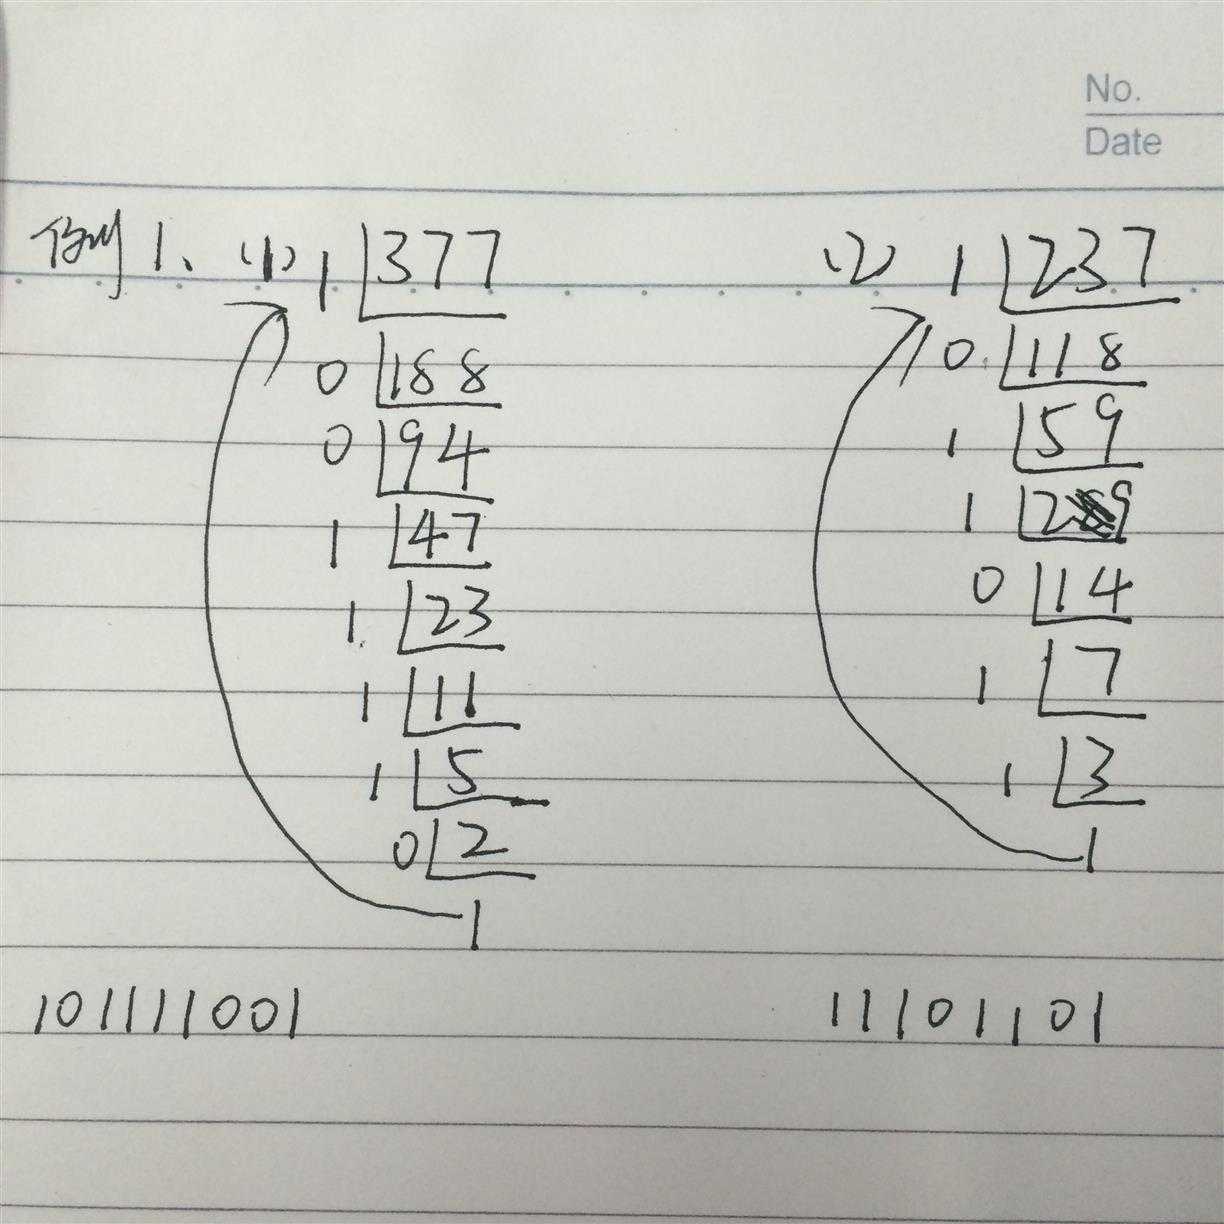 No.
Date
例1、(1) 1 377
0 188
0 94
1 47
1 23
1 11
1 5
0 2
1
101111001
(2) 1 237
0 118
1 59
1 29
0 14
1 7
1 3
1
11101101